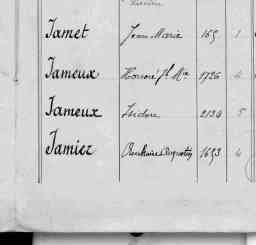 Jamet Jean Marie 165 1
Jameux Honoré Jh Mie 1736 4
Jameux Isidore 2134 5
Jamier Auguste 1653 4